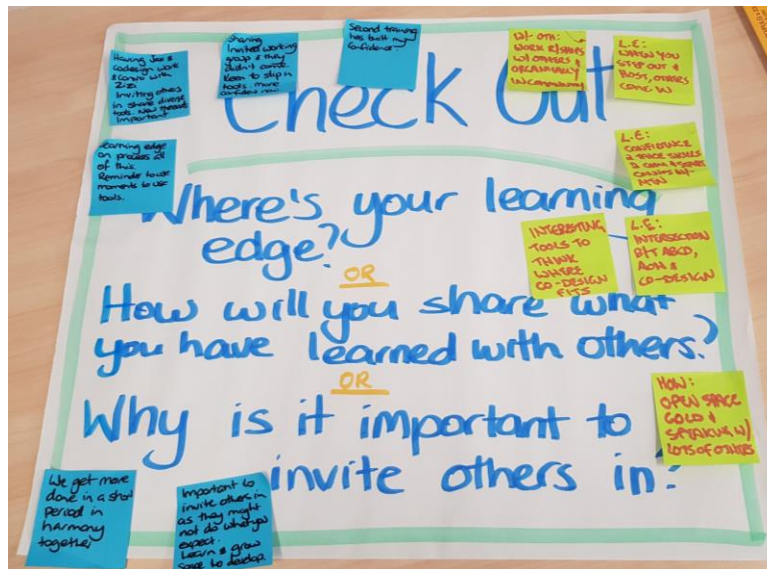 Check Out
Where's your learning
edge?
OR
How will you share what
you have learned with others?
OR
Why is it important to
invite others in?
Having Jax &
codesign work
& convo with
Zizi
Inviting others
in share diverse
tools.
Important
Sharing
Invited working
group & they
didn't
Keen to slip in
tools. more
confident now
Second training
has built my
confidence.
learning edge
on process all
of this.
Reminder to use
moments to use
tools.
W/ OTH:
WORK R/SHIPS
W/ OTHERS &
ORGANICALLY
IN COMMUNITY
L.E:
WHEN YOU
STEP OUT &
HOST, OTHERS
COME IN
L.E:
CONFIDENCE
2 THESE SKILLS
INTERESTING
TOOLS TO
THINK
WHERE
CO-DESIGN
FITS
L.E:
INTERSECTION
B/T ABCD,
AOH &
CO-DESIGN
HOW:
OPEN SPACE
GOLD &
SPEAKING W/
LOTS OF OTHERS
We get more
done in a short
period in
harmony
together
Important to
invite others in
as they might
not do what you
expect.
Learn & grow
space to develop.